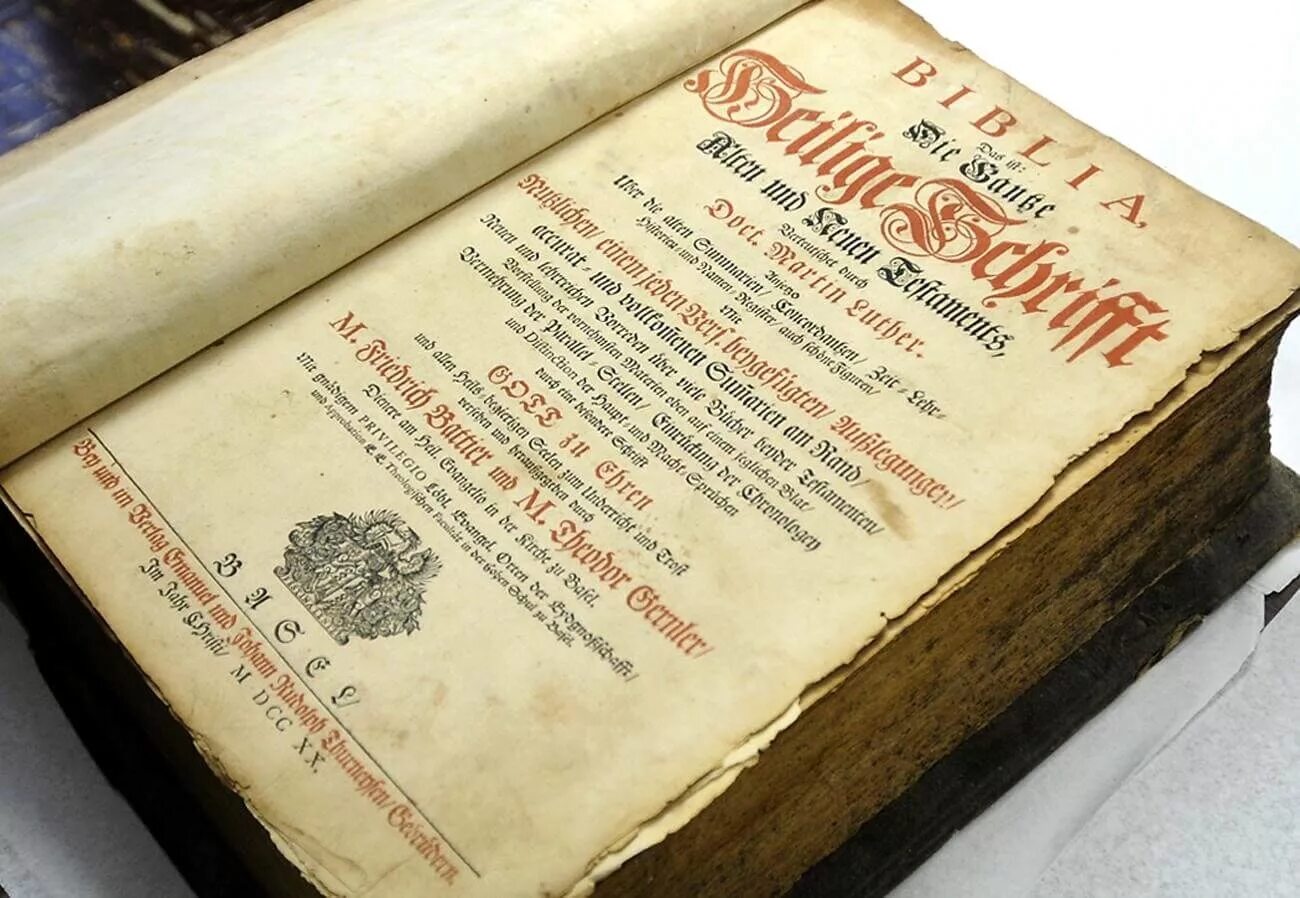 BIBLIA,
Das ist:
Die Gantze
Heilige Schrifft
Alten und Neuen Testaments,
Verteutschet durch
Doct. Martin Luther.
Anjetzo
Mit
Uber die alten Summarien/ Concordantzen/ Zeit- Lehr-
Historien und Namen-Register/ auch schöne Figuren/
Nutzlichen/ einen jeden Vers. beygefügten/ Außlegungen/
accurat- und vollkom̃enen Sum̃arien am Rand/
Neuen und lehrreichen Vorreden über viele Bücher beyder Testamenten/
Vorstellung der vornehmsten Materien oben auf einem jeglichen Blat/
Vermehrung der Parallel-Stellen/ Einruckung der Chronologey
und Distinction der Haupt- und Macht-Sprüchen
durch eine besondere Schrifft
GOTT zu Ehren
und allen Heyls-begierigen Seelen zum Underricht und Trost
versehen und herausgegeben durch
M. Friedrich Battier und M. Theodor Gernler/
Dienere am Heil. Evangelio in der Kirche zu Basel.
Mit gnädigem PRIVILEGIO Löbl. Evangel. Orten der Eydgnoßschafft/
und Approbation E. E. Theologischen Facultät in der hohen Schul zu Basel.
BASEL/
Bey und im Verlag Emanuel und Johann Rudolph Thurneysen/ Gebrüdern.
Im Jahr CHristi/ MDCCXX.